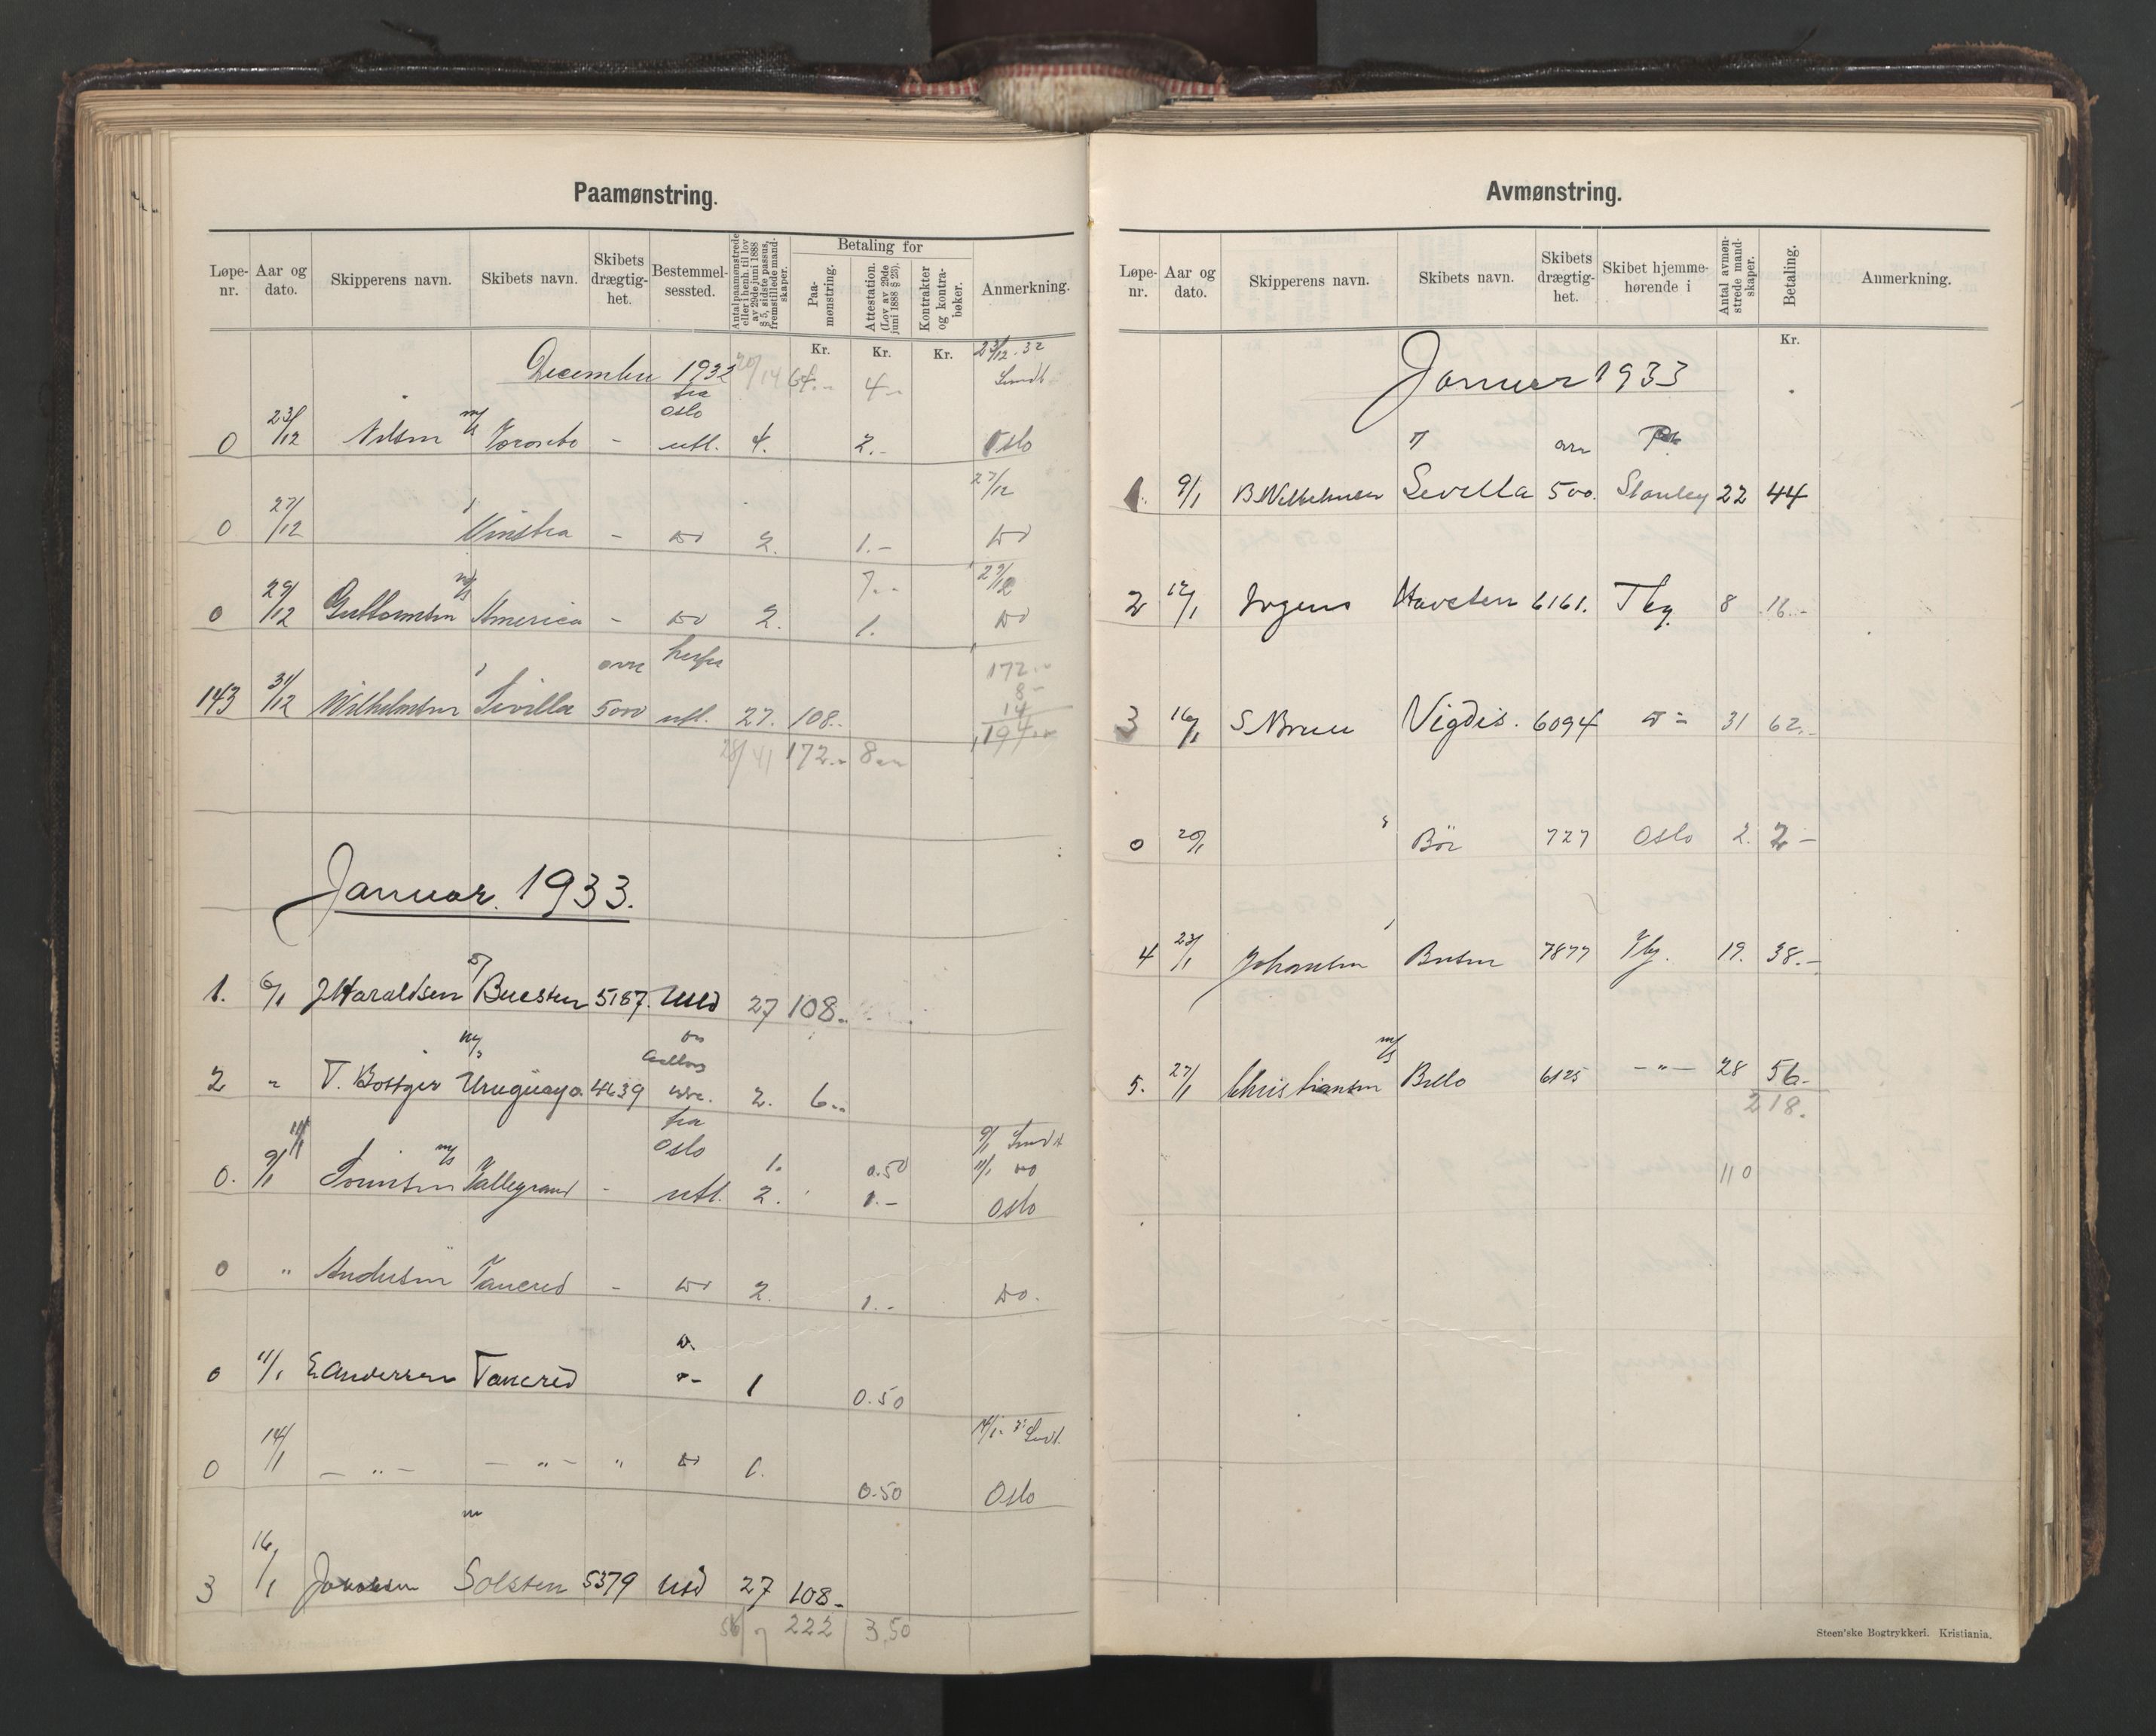 Paamønstring.
Løpe-nr. Aar og dato. Skipperens navn. Skibets navn. Skibets drægtig-het. Bestemmel-sessted. Antal paamønstrede eller i henh. til lov av 29de juni 1888 § 5, sidste passus, fremstillede mand-skaper. Betaling for Paa-mønstring. Attestation. (Lov av 29de juni 1888 § 23). Kontrakter og kontra-bøker. Anmerkning.
Kr. Kr. Kr.
December 1932 20/14 64.- 4- 23/12.32
fra Oslo
0 23/12 Nilsen m/s - utl. 4. 2.- Oslo
27/12
0 27/12 Vinstra - do 2. 1.- do
7.- 29/12
0 29/12 Guttormsen m/s America - do 2. 1. do
172.-
8-
14
194.-
143 31/12 Wilhelmsen Sevilla 5000 utl. 27. 108.-
28/41 172.- 8.-
Januar. 1933.
1. 6/1 J Haraldsen Buesten 5187. Utld 27 108.-
2 " T. Bottger m/s Uruguayo. 4639 2. 6.-
fra Oslo
0. 9/1 11/1 m/s - utl. 1. 2. 0.50 1.- 9/1 11/1 do Oslo
0 " Andersen Tancred - do 2. 1.- do.
0 11/1 E Andersen Tancred 1 0.50
0 14/1 — " — — " — " do 1. 0.50 14/1 Oslo
3 16/1 Solsten 5379 Utld 27 108-
222 3,50
Avmønstring.
Løpe-nr. Aar og dato. Skipperens navn. Skibets navn. Skibets drægtig-het. Skibet hjemme-hørende i Antal avmøn-strede mand-skaper. Betaling. Anmerkning.
Kr.
Januar 1933
1. 9/1 B Wilhelmsen Sevilla 500. Stanley 22 44
2 12/1 Havsten 6161. Tbg. 8 16.-
3 16/1 S Bruu Vigdis. 6094 do 31 62.-
0 20/1 Bör 727 Oslo 2. 2-
4 23/1 Johansen 7877 Tbg. 19. 38.-
5. 27/1 Christiansen m/s Brllo 6125 — " — 28 56.-
218.
110
Steen'ske Bogtrykkeri. Kristiania.